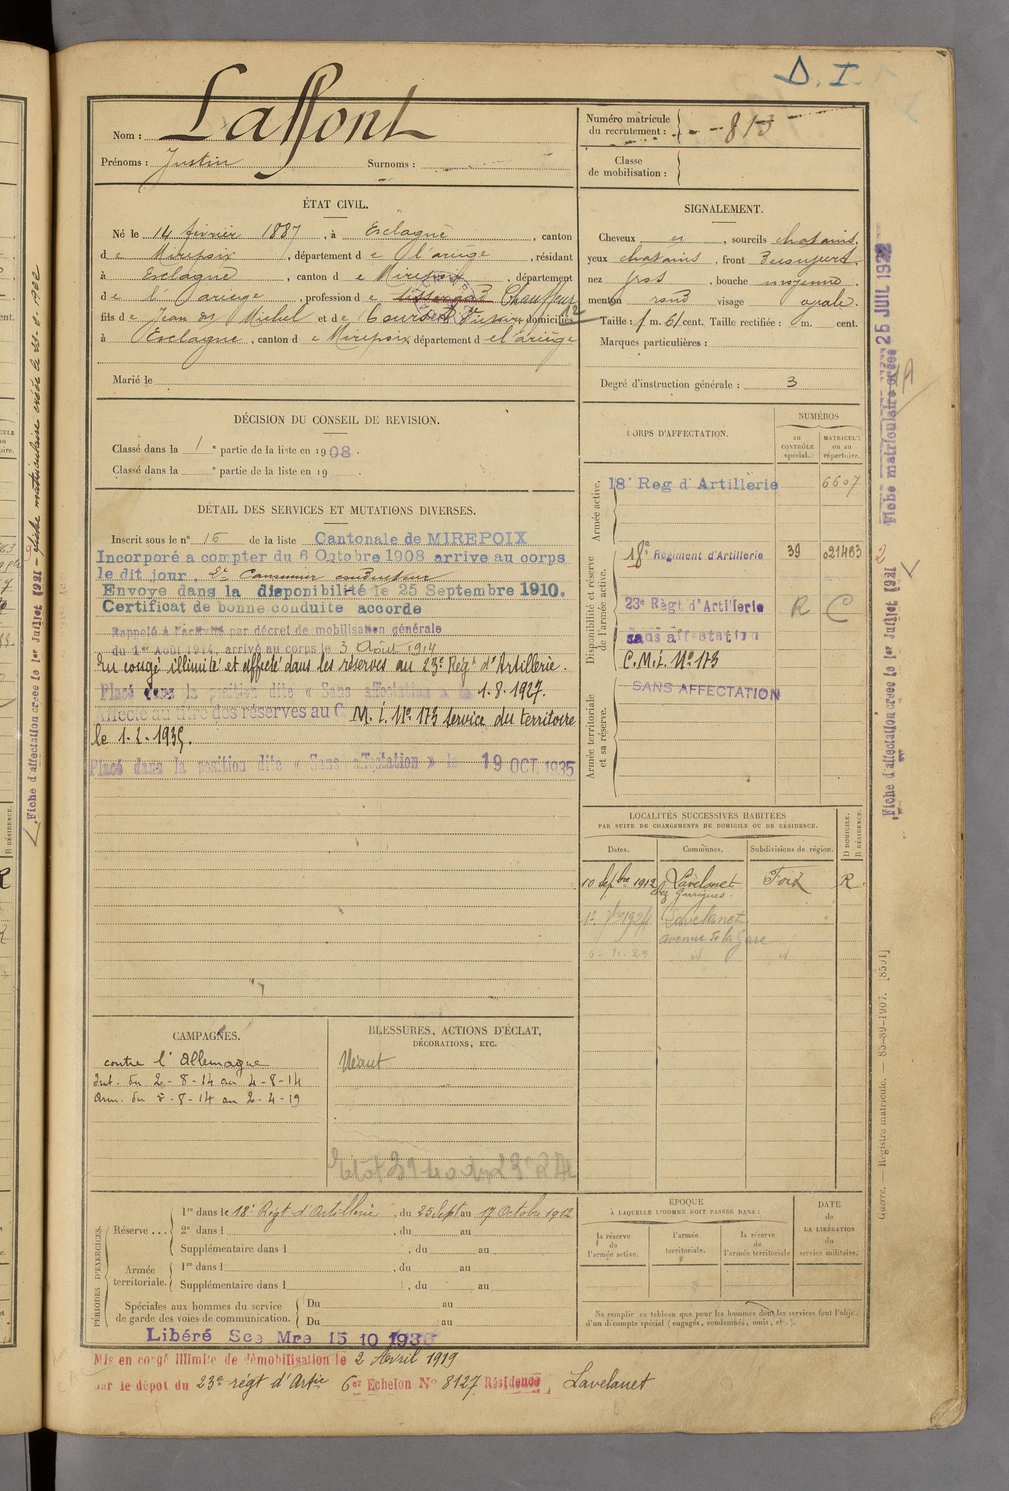 D. I.
Nom : Laffont
Prénoms : Justin Surnoms :
Numéro matricule du recrutement : 813
Classe de mobilisation :
ÉTAT CIVIL.
Né le 14 février 1887, à Esclagne, canton
de Mirepoix, département de l'ariège, résidant
à Esclagne, canton de Mirepoix, département
de l'ariège, profession de Chauffeur
fils de Jean et de domiciliés
à Esclagne, canton de Mirepoix département de l'ariège
Marié le
SIGNALEMENT.
Cheveux , sourcils chatains,
yeux chatains, front
nez gros, bouche moyenne,
menton rond visage ovale.
Taille : 1 m. 61 cent. Taille rectifiée : m. cent.
Marques particulières :
Degré d'instruction générale : 3
DÉCISION DU CONSEIL DE REVISION.
Classé dans la 1e partie de la liste en 1908.
Classé dans la e partie de la liste en 19
DÉTAIL DES SERVICES ET MUTATIONS DIVERSES.
Inscrit sous le n° 16 de la liste Cantonale de MIREPOIX
Incorporé a compter du 6 Octobre 1908 arrive au corps
le dit jour. 2e Canonnier conducteur
Envoye dans la disponibilité le 25 Septembre 1910.
Certificat de bonne conduite accorde
Rappelé à l'activité par décret de mobilisation générale
du 1er Août 1914, arrivé au corps le 3 Août 1914
En congé illimité et affecté dans les réserves au 23e Régt d'Artillerie.
Placé dans la position dite « Sans affectation » le 1.8.1927.
Affecté au titre des réserves au C. M. I. N° 173 service du territoire
le 1-2-1935.
Placé dans la position dite « Sans affectation » le 19 OCT. 1935
CORPS D'AFFECTATION.
NUMÉROS
AU CONTRÔLE spécial.
MATRICULE ou au répertoire.
Armée active.
18e Reg d'Artillerie 6607
Disponibilité et réserve de l'armée active.
18e Régiment d'Artillerie 39 021463
23e Règt d'Artillerie R C
sans affectation
C.M.I. N° 173
Armée territoriale et sa réserve.
SANS AFFECTATION
LOCALITÉS SUCCESSIVES HABITÉES
PAR SUITE DE CHANGEMENTS DE DOMICILE OU DE RÉSIDENCE.
Dates. Communes. Subdivisions de région. D DOMICILE. R RÉSIDENCE.
10 Septbre 1912 Lavelanet Foix R.
chez Garrigues.
Lavelanet
avenue de la Gare
6-11-29 id id
CAMPAGNES.
contre l'Allemagne
Int. du 2-8-14 au 4-8-14
Arm. du 5-8-14 au 2-4-19
BLESSURES, ACTIONS D'ÉCLAT,
DÉCORATIONS, ETC.
Néant
PÉRIODES D'EXERCICES.
Réserve... 1re dans le 18e Régt d'Artillerie, du 25 Sept au 17 Octobre 1912
2e dans l , du au
Supplémentaire dans l , du au
Armée territoriale. 1re dans l , du au
Supplémentaire dans l , du au
Spéciales aux hommes du service de garde des voies de communication. Du au
Du au
ÉPOQUE
À LAQUELLE L'HOMME DOIT PASSER DANS :
la réserve de l'armée active.
l'armée territoriale.
la réserve de l'armée territoriale
DATE de LA LIBÉRATION du service militaire.
Ne remplir ce tableau que pour les hommes dont les services font l'objet
d'un décompte spécial (engagés, condamnés, omis, etc.).
Libéré Sce Mre 15 10 1936
Mis en congé illimité de démobilisation le 2 Avril 1919
par le dépôt du 23e régt d'Artie 6er Echelon N° 8127 Résidence Lavelanet
Fiche matriculaire créée 25 JUIL 1932
Fiche d'affectation créée le 1er Juillet 1931
Guerre. — Registre matricule. — 83-80-1907. [8591]
Fiche d'affectation créée le 1er Juillet 1931